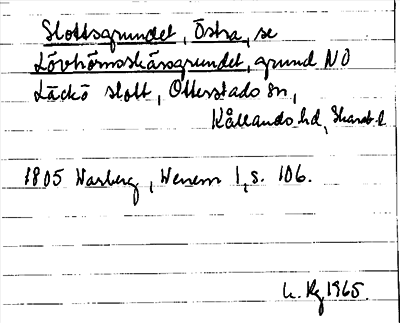 Slottsgrundet, Östra, se
Lövhörnsskärsgrundet, grund NO
Läckö slott, Otterstads sn,
Kållands hd, Skarab. l.
1805 Warberg, Wenern 1, s. 106.
Kg 1965.